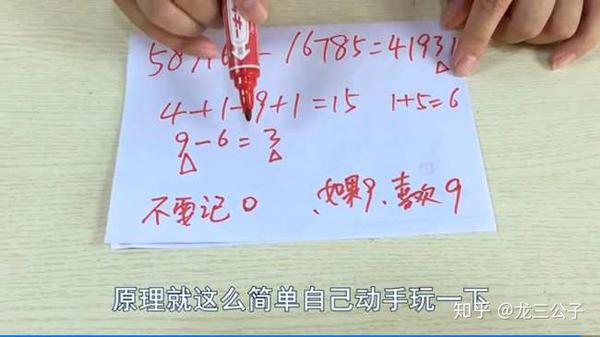 58716-16785=41931
4+1+9+1=15 1+5=6
9-6=3
不要记0 、如果9、喜欢9
原理就这么简单自己动手玩一下
知乎 @龙三公子